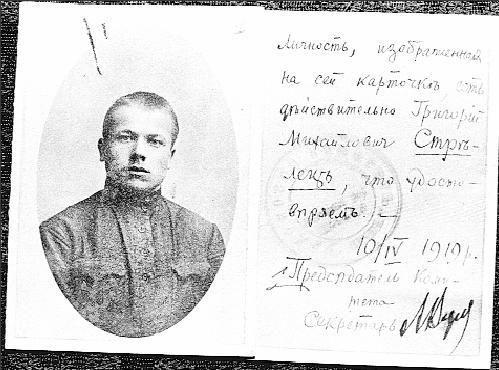 Личность, изображенная
на сей карточкѣ есть
дѣйствительно Григорій
Михайлович Стрѣ-
лецъ, что удосто-
вѣряемъ. —
10/IV 1919 г.
Председатель Коми-
тета
Секретарь